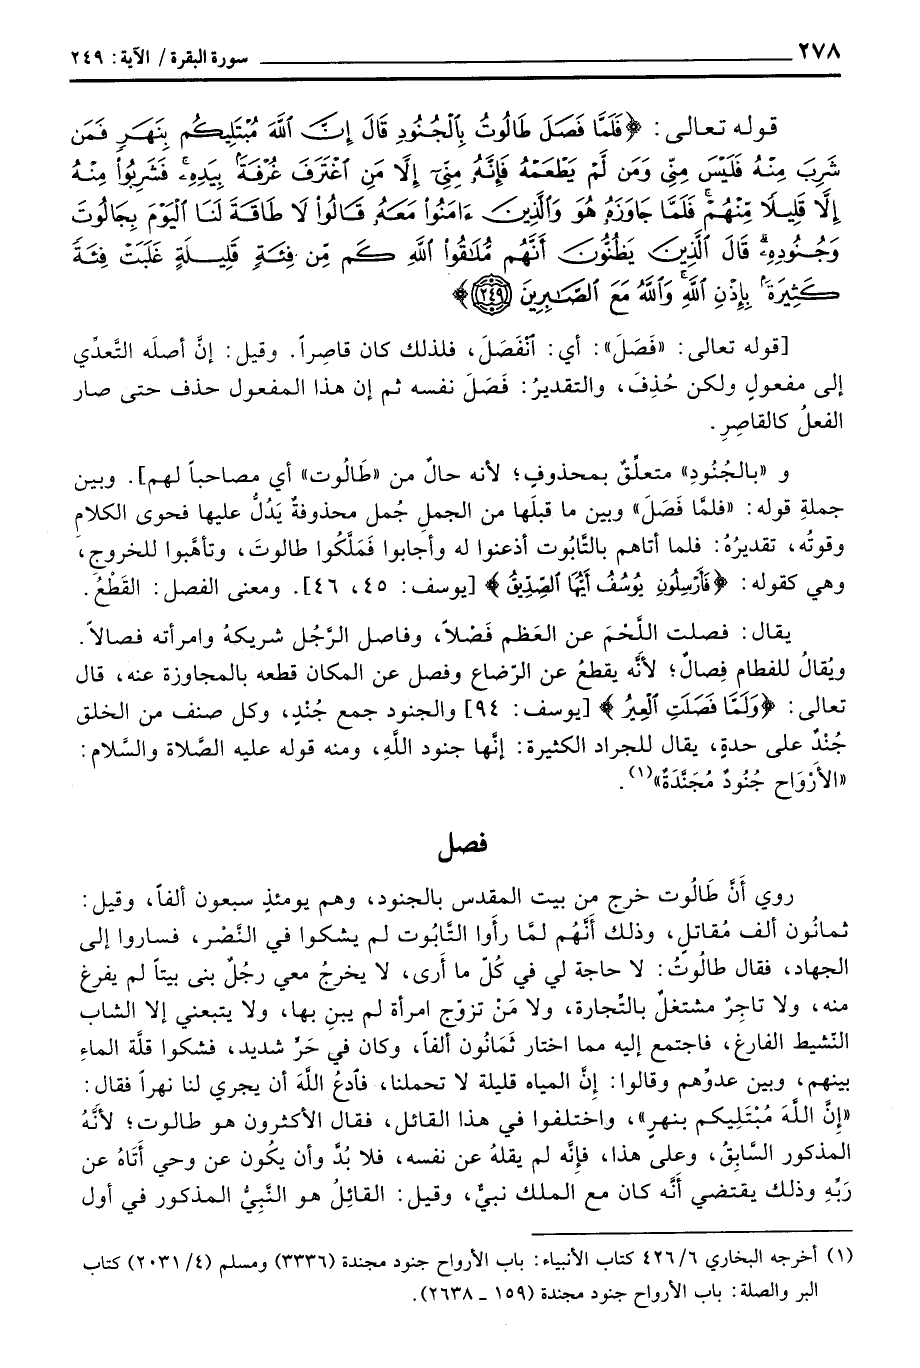 ٢٧٨ سورة البقرة / الآية: ٢٤٩
قوله تعالى: ﴿فَلَمَّا فَصَلَ طَالُوتُ بِالْجُنُودِ قَالَ إِنَّ اللَّهَ مُبْتَلِيكُم بِنَهَرٍ فَمَن
شَرِبَ مِنْهُ فَلَيْسَ مِنِّي وَمَن لَّمْ يَطْعَمْهُ فَإِنَّهُ مِنِّي إِلَّا مَنِ اغْتَرَفَ غُرْفَةً بِيَدِهِ فَشَرِبُوا مِنْهُ
إِلَّا قَلِيلًا مِّنْهُمْ فَلَمَّا جَاوَزَهُ هُوَ وَالَّذِينَ ءَامَنُوا مَعَهُ قَالُوا لَا طَاقَةَ لَنَا الْيَوْمَ بِجَالُوتَ
وَجُنُودِهِ قَالَ الَّذِينَ يَظُنُّونَ أَنَّهُم مُّلَاقُوا اللَّهِ كَم مِّن فِئَةٍ قَلِيلَةٍ غَلَبَتْ فِئَةً
كَثِيرَةً بِإِذْنِ اللَّهِ وَاللَّهُ مَعَ الصَّابِرِينَ (٢٤٩)﴾
[قوله تعالى: «فَصَلَ»: أي: اَنْفَصَلَ، فلذلك كان قاصِراً. وقيل: إنَّ أصلَه التَّعدِّي
إلى مفعولٍ ولكن حُذِفَ، والتقديرُ: فَصَلَ نفسه ثم إن هذا المفعول حذف حتى صار
الفعلُ كالقاصِرِ.
و «بالجُنُودِ» متعلِّقٌ بمحذوفٍ؛ لأنه حالٌ من «طَالُوت» أي مصاحباً لهم]. وبين
جملةِ قوله: «فلمَّا فَصَلَ» وبين ما قبلَها من الجملِ جُمل محذوفةٌ يَدُلُّ عليها فحوى الكلامِ
وقوتُه، تقديرُهُ: فلما أتاهم بالتَّابُوت أذعنوا له وأجابوا فَمَلَّكُوا طالوتَ، وتأهَّبوا للخروج،
وهي كقوله: ﴿فَأَرْسِلُونِ يُوسُفُ أَيُّهَا الصِّدِّيقُ﴾ [يوسف: ٤٥، ٤٦]. ومعنى الفصل: القَطْعُ.
يقال: فصلت اللَّحْمَ عن العَظم فَصْلاً، وفاصل الرَّجُل شريكهُ وامرأته فصالاً.
ويُقالُ للفطام فِصالٌ؛ لأنَّه يقطعُ عن الرّضاع وفصل عن المكان قطعه بالمجاوزة عنه، قال
تعالى: ﴿وَلَمَّا فَصَلَتِ الْعِيرُ﴾ [يوسف: ٩٤] والجنود جمع جُنْدٍ، وكل صنف من الخلق
جُنْدٌ على حدةٍ، يقال للجراد الكثيرة: إنَّها جنود اللَّهِ، ومنه قوله عليه الصَّلاة والسَّلام:
«الأَرْوَاح جُنُودٌ مُجَنَّدَةٌ»(١).
فصل
روي أَنَّ طَالُوت خرج من بيت المقدس بالجنود، وهم يومئذٍ سبعون ألفاً، وقيل:
ثمانُون ألف مُقاتل، وذلك أَنَّهُم لمَّا رأوا التَّابُوت لم يشكوا في النَّصْر، فساروا إلى
الجهاد، فقال طالُوتُ: لا حاجة لي في كُلّ ما أَرى، لا يخرجُ معي رجُلٌ بنى بيتاً لم يفرغ
منه، ولا تاجِرٌ مشتغلٌ بالتِّجارة، ولا مَنْ تزوّج امرأة لم يبنِ بها، ولا يتبعني إلا الشاب
النّشيط الفارغ، فاجتمع إليه مما اختار ثَمَانُون ألفاً، وكان في حَرٍّ شديد، فشكوا قلَّة الماءِ
بينهم، وبين عدوِّهم وقالوا: إنَّ المياه قليلة لا تحملنا، فأدعُ اللَّهَ أن يجري لنا نهراً فقال:
«إِنَّ اللَّهَ مُبْتَلِيكم بنهرٍ»، واختلفوا في هذا القائل، فقال الأكثرون هو طالوت؛ لأنَّهُ
المذكور السَّابِقُ، وعلى هذا، فإنَّه لم يقلهُ عن نفسه، فلا بُدَّ وأن يكُون عن وحي أَتَاهُ عن
رَبِّهِ وذلك يقتضي أنَّه كان مع الملك نبيٌّ، وقيل: القائِلُ هو النَّبِيُّ المذكور في أول
(١) أخرجه البخاري ٤٢٦/٦ كتاب الأنبياء: باب الأرواح جنود مجندة (٣٣٣٦) ومسلم (٢٠٣١/٤) كتاب
البر والصلة: باب الأرواح جنود مجندة (١٥٩ ـ ٢٦٣٨).